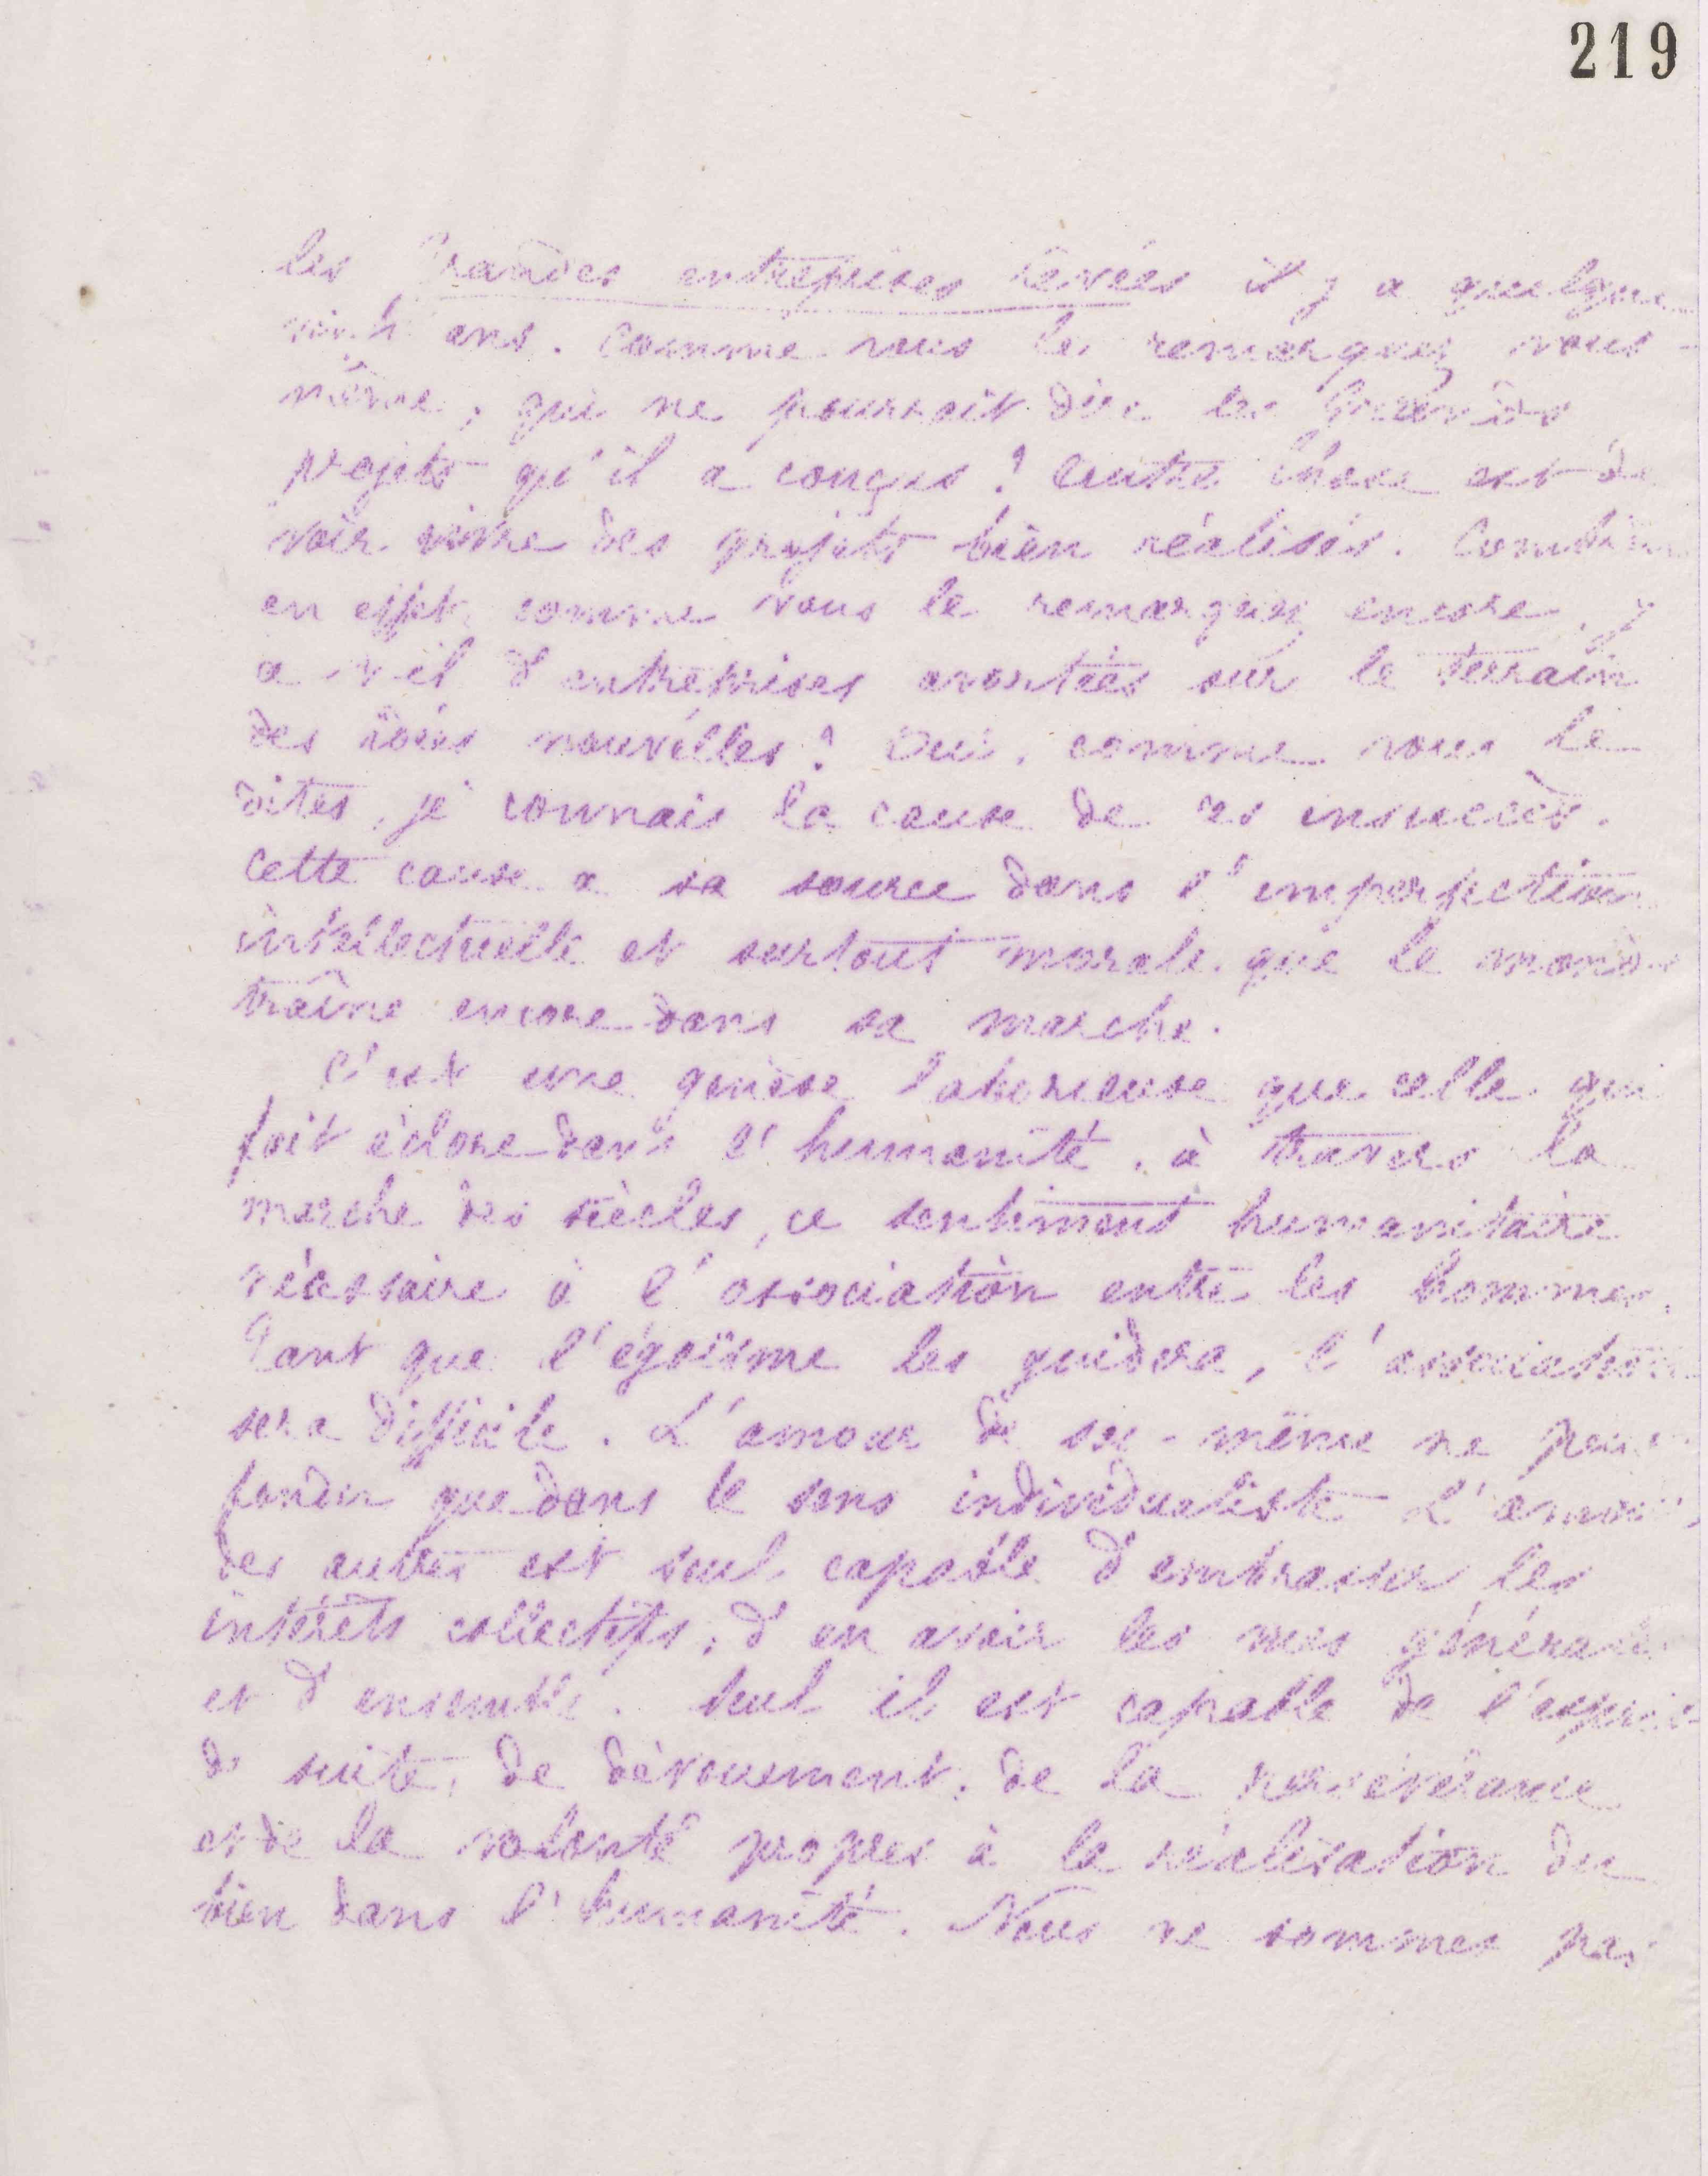 219
les Grandes entreprises rêvées il y a quelque
vingt ans. Comme vous le remarquez vous-
même, qui ne pourrait dire les grands
projets qu'il a conçus ? Autre chose est de
voir vivre des projets bien réalisés. Combien
en effet, comme vous le remarquez encore, y
a-t-il d'entreprises avortées sur le terrain
des idées nouvelles ? Oui, comme vous le
dites, je connais la cause de ces insuccès.
Cette cause a sa source dans l'imperfection
intellectuelle et surtout morale que le monde
traîne encore dans sa marche.
C'est une genèse laborieuse que celle qui
fait éclore dans l'humanité, à travers la
marche des siècles, ce sentiment humanitaire
nécessaire à l'association entre les hommes.
Tant que l'égoïsme les guidera, l'association
sera difficile. L'amour de soi-même ne peut
fonder que dans le sens individualiste. L'amour
des autres est seul capable d'embrasser les
intérêts collectifs, d'en avoir les vues générales
et d'ensemble. Seul il est capable de l'esprit
de suite, de dévouement, de la persévérance
et de la volonté propres à la réalisation du
bien dans l'humanité. Nous ne sommes pas